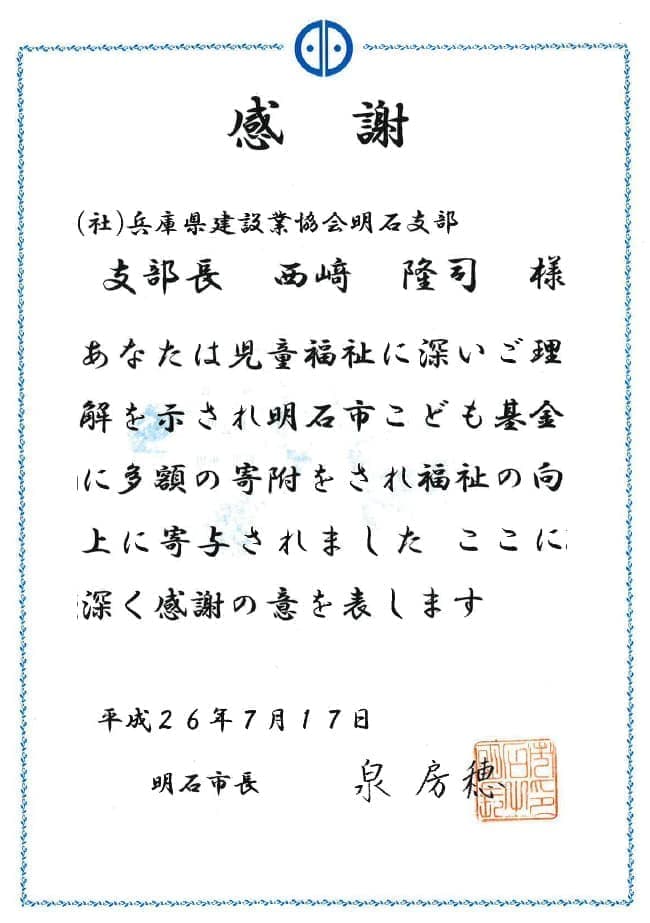 感 謝
(社)兵庫県建設業協会明石支部
支部長 西﨑 隆司 様
あなたは児童福祉に深いご理
解を示され明石市こども基金
に多額の寄附をされ福祉の向
上に寄与されました ここに
深く感謝の意を表します
平成26年7月17日
明石市長 泉 房穂